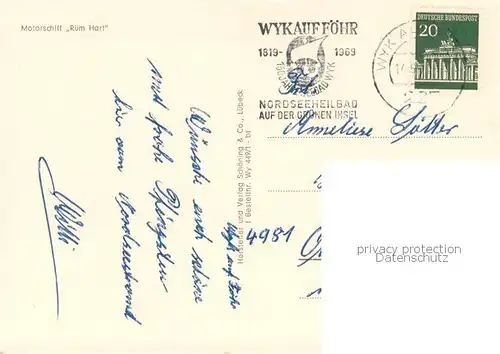 Motorschiff „Rüm Hart"
WYK AUF FÖHR
1819- 1969
150 JAHRE SEEBAD WYK
NORDSEEHEILBAD
AUF DER GRÜNEN INSEL
DEUTSCHE BUNDESPOST
20
WYK A
Frl.
Anneliese Götter
4981
Wyk auf Föhr
Wünsche euch schöne
und frohe Pfingsten
hier vom Nordseestrand
Willi
Hersteller und Verlag Schöning & Co., Lübeck
Bestellnr. Wy 449/1 - bl
privacy protection
Datenschutz